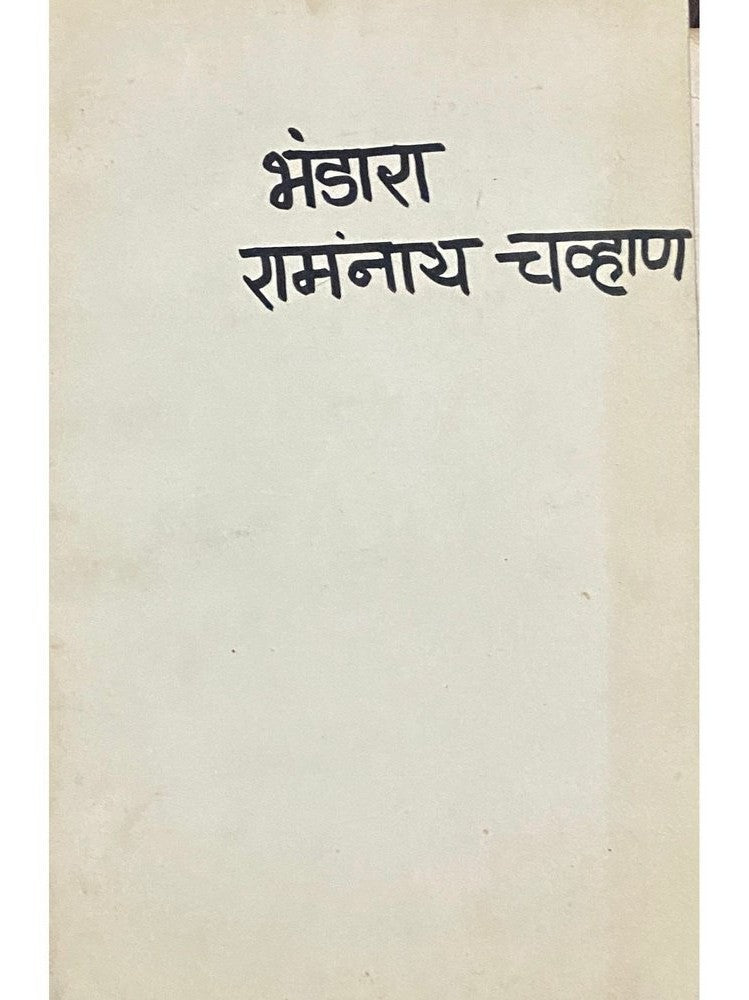 भंडारा
रामंनाथ चव्हाण